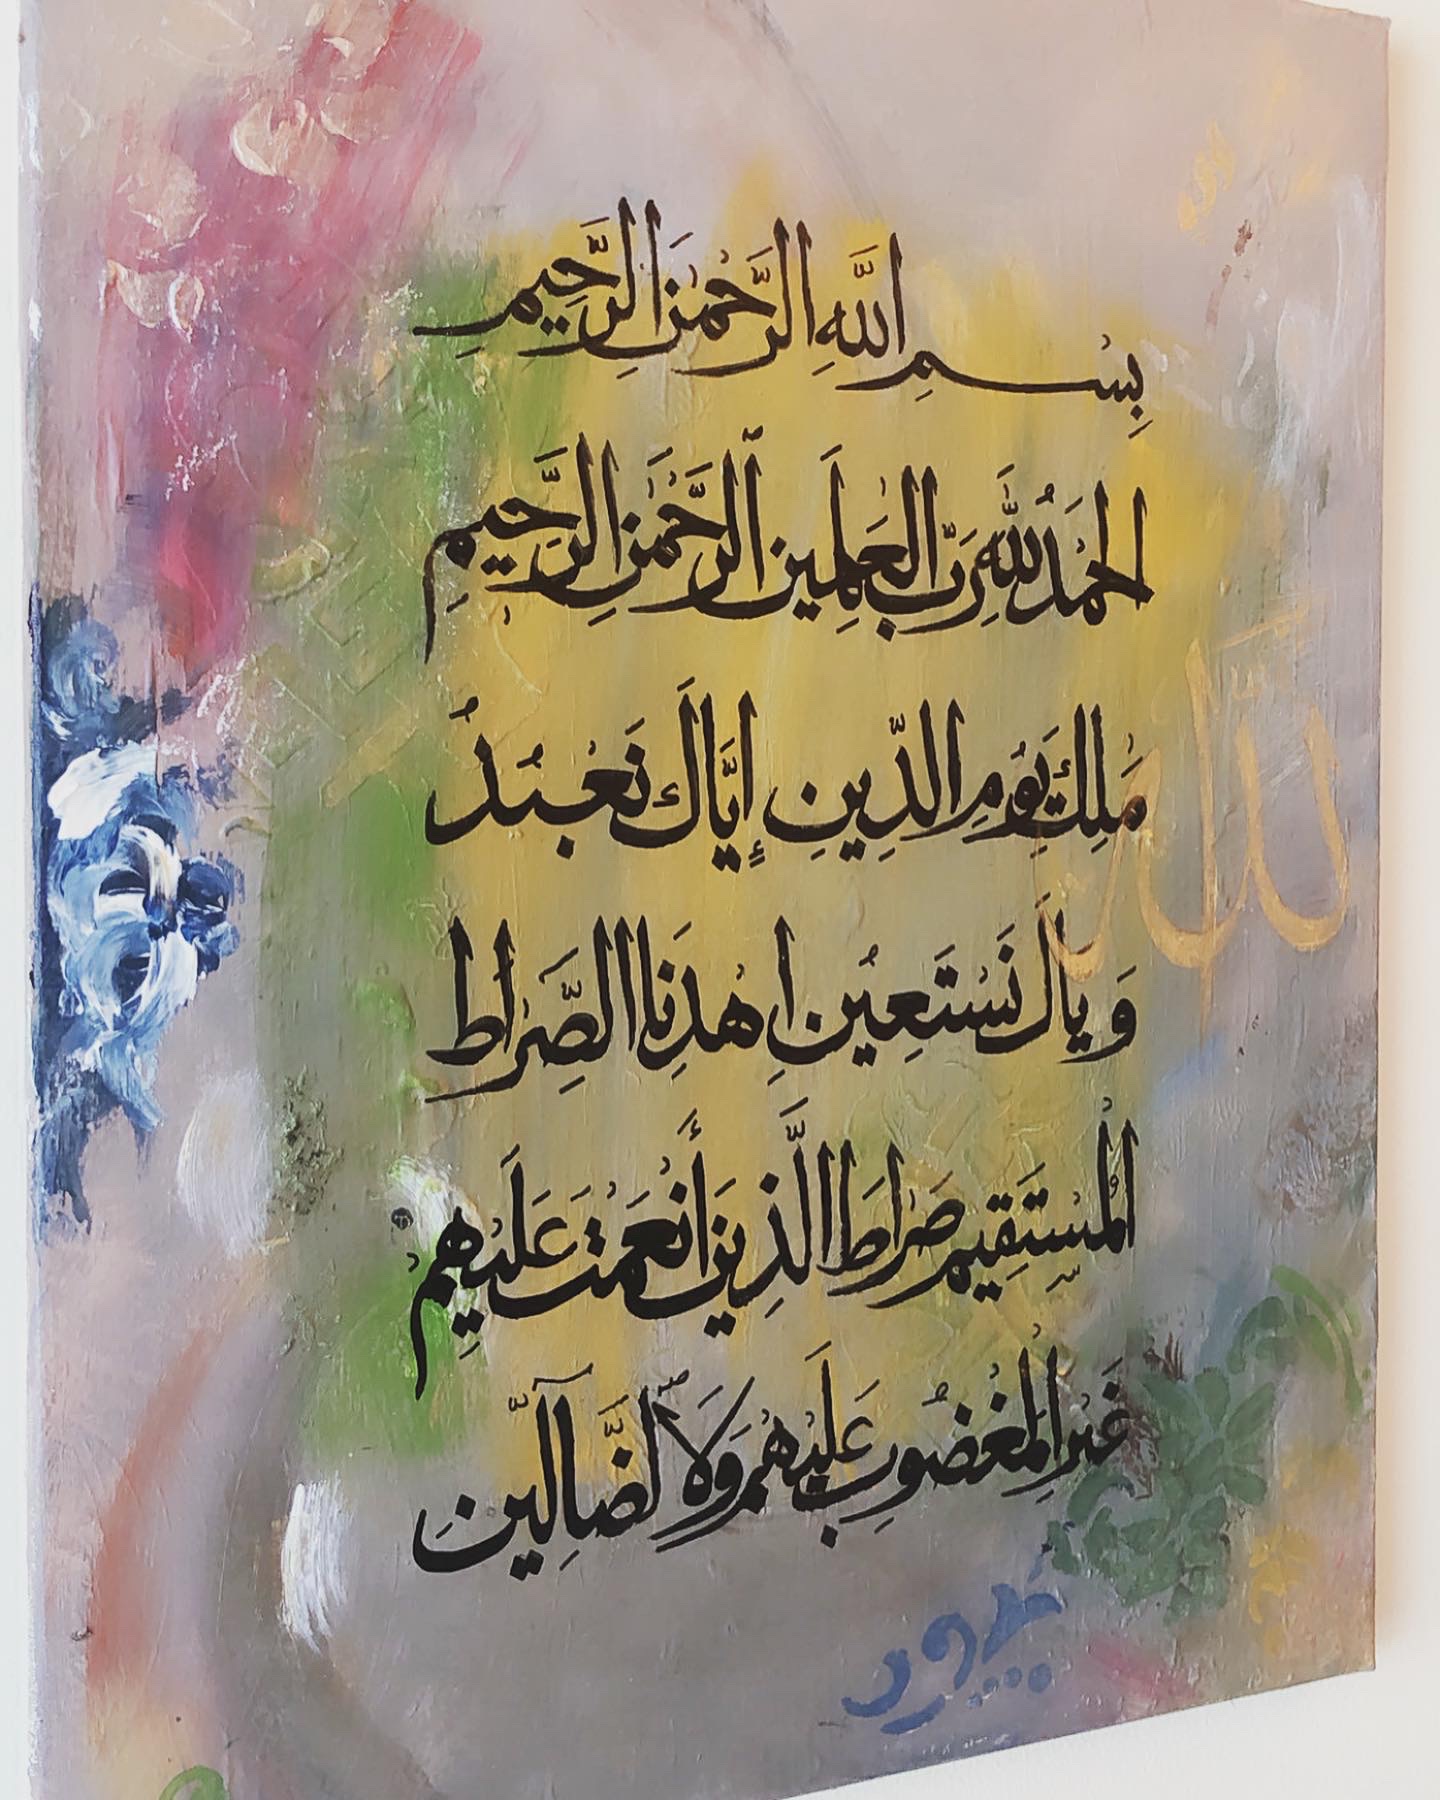 بِسْمِ اللَّهِ الرَّحْمٰنِ الرَّحِيمِ
الحَمْدُ لِلَّهِ رَبِّ العٰلَمِين الرَّحْمٰنِ الرَّحِيمِ
مٰلِكِ يَوْمِ الدِّينِ إِيَّاكَ نَعْبُدُ
وَ ياكَ نَسْتَعِين اهْدِنَا الصِّرٰط
المُسْتَقِيم صِرٰطَ الَّذِينَ أَنْعَمْتَ عَلَيْهِمْ
غَيْرِ المَغْضُوبِ عَلَيْهِمْ وَلَا لضَّآلِّينَ
لله